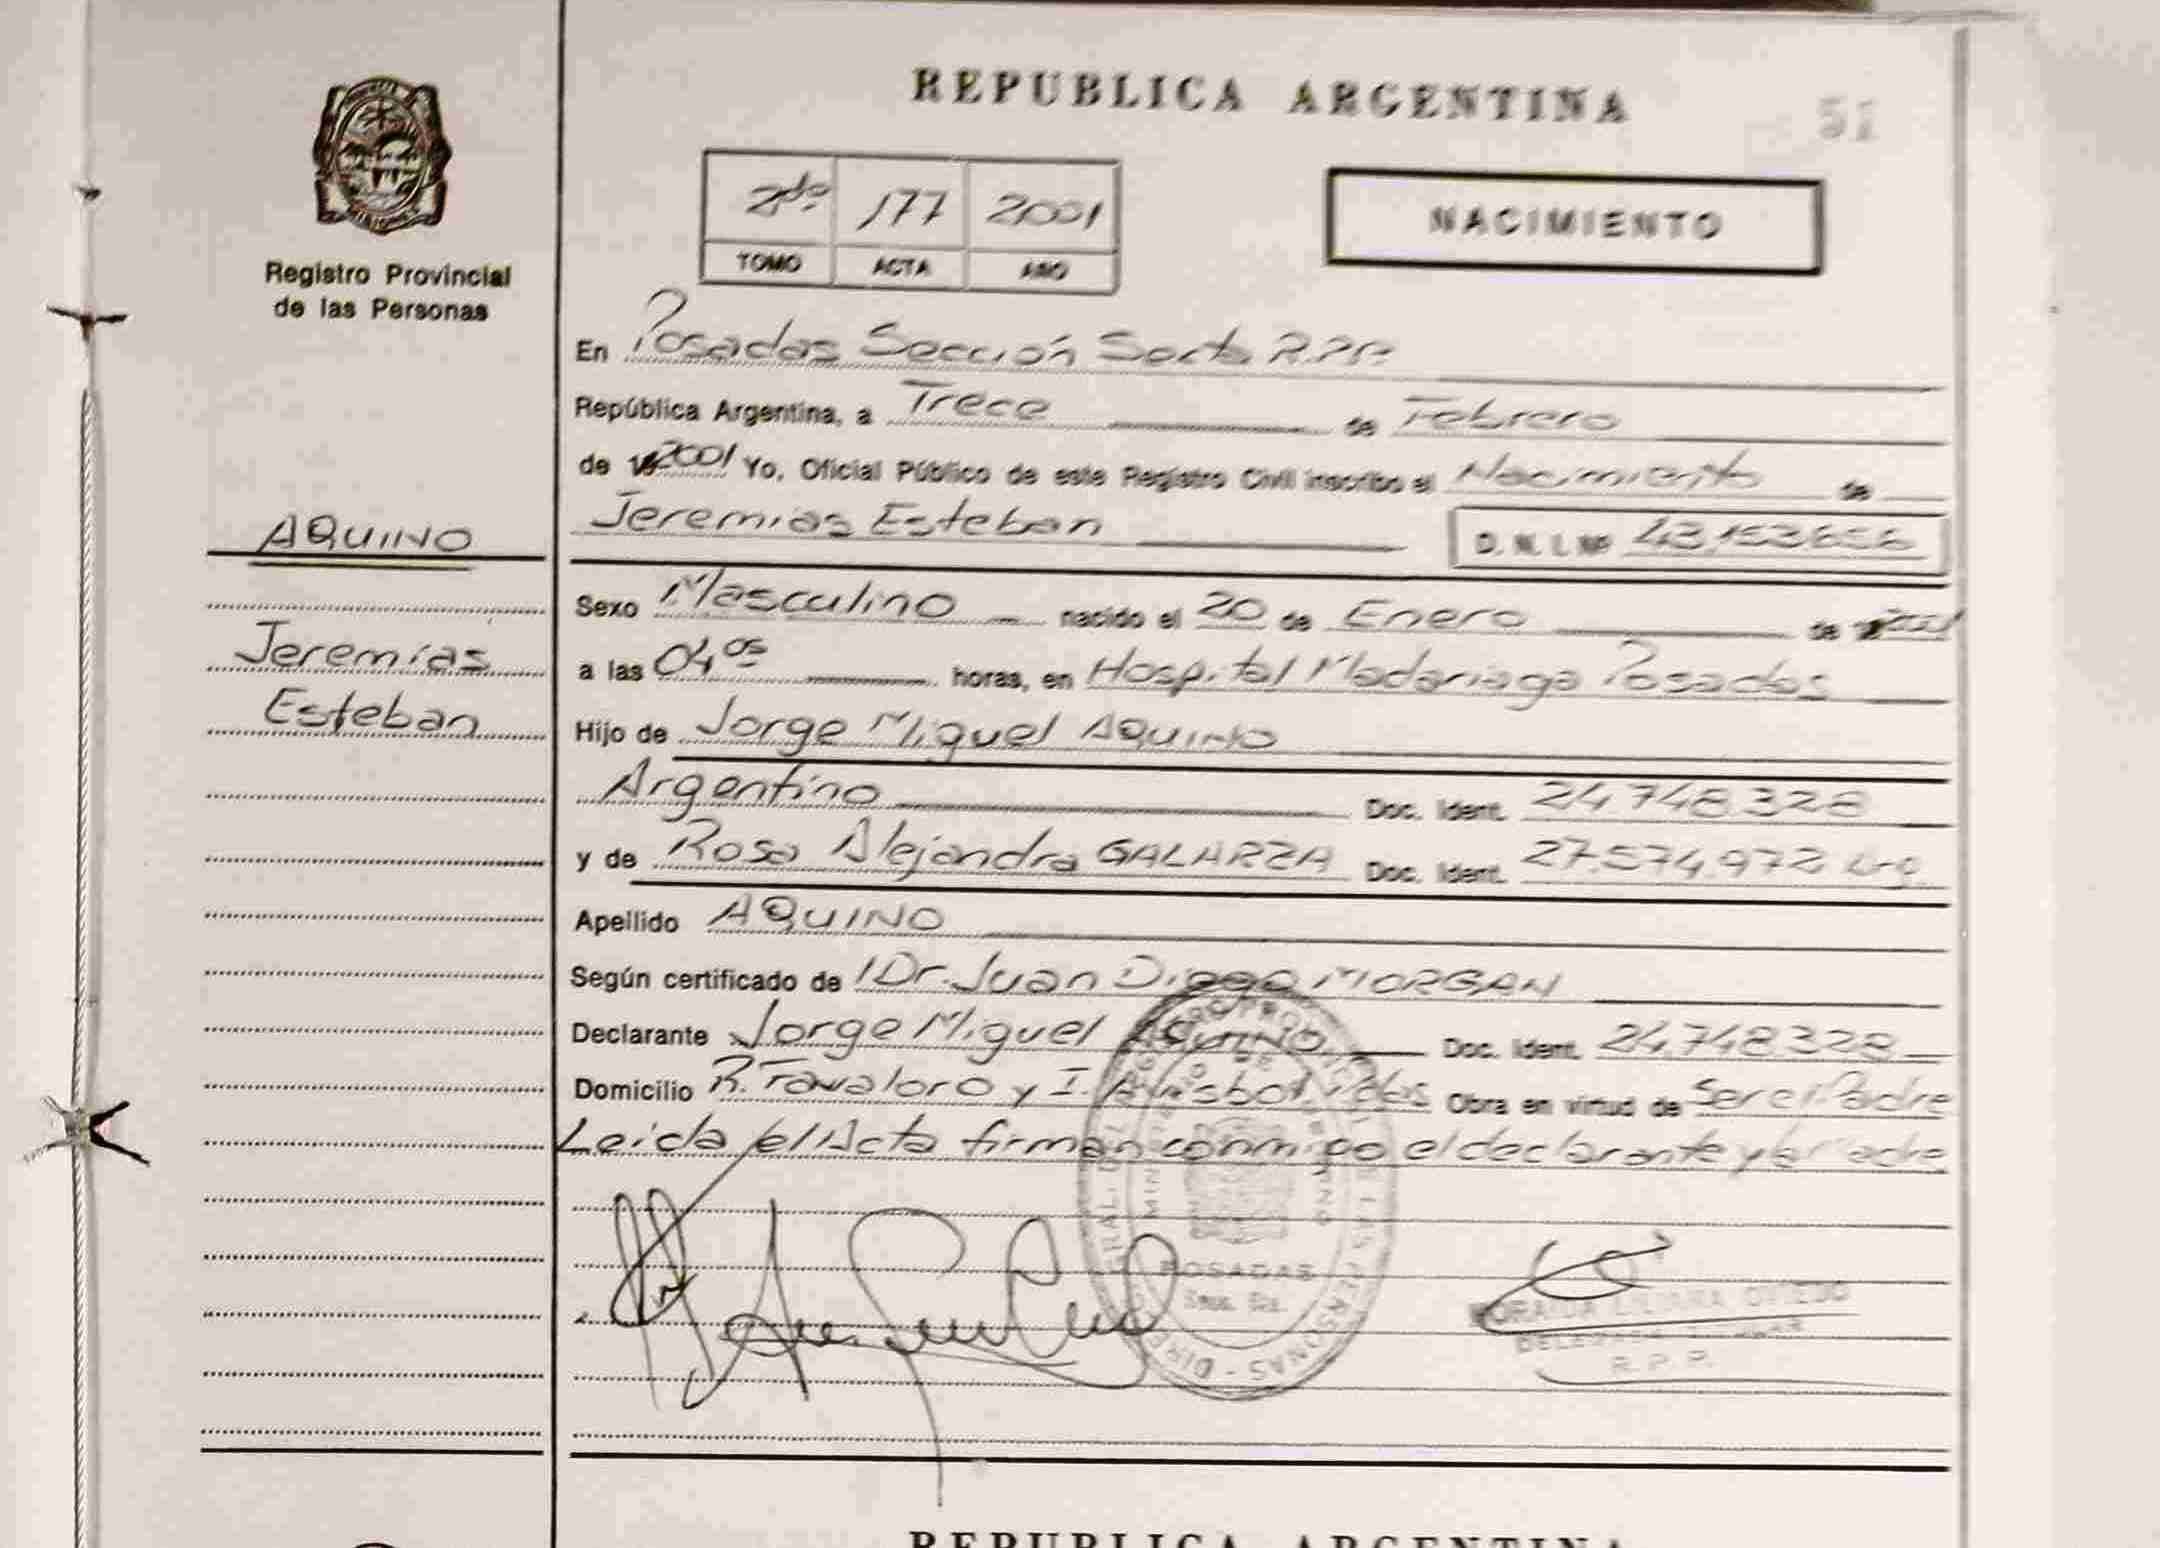 REPUBLICA ARGENTINA
51
2do 177 2001
TOMO ACTA AÑO
NACIMIENTO
Registro Provincial
de las Personas
En Posadas Sección Sexta R.P.P.
República Argentina, a Trece de Febrero
de 19 2001 Yo, Oficial Público de este Registro Civil inscribo el Nacimiento de
Jeremias Esteban D.N.I. Nº 43.153.656
AQUINO
Jeremías
Esteban
Sexo Masculino nacido el 20 de Enero de 2001
a las 04 05 horas, en Hospital Madariaga Posadas
Hijo de Jorge Miguel AQUINO
Argentino Doc. Ident. 24.748.328
y de Rosa Alejandra GALARZA Doc. Ident. 27.574.972 Arg
Apellido AQUINO
Según certificado de Dr. Juan Diego MORGAN
Declarante Jorge Miguel AQUINO Doc. Ident. 24.748.328
Domicilio R. y I. Obra en virtud de Ser el Padre
Leida el Acta firman conmigo el declarante y la Madre
POSADAS
LILIANA OVIEDO
DELEGADA TITULAR
R. P. P.
REPUBLICA ARGENTINA